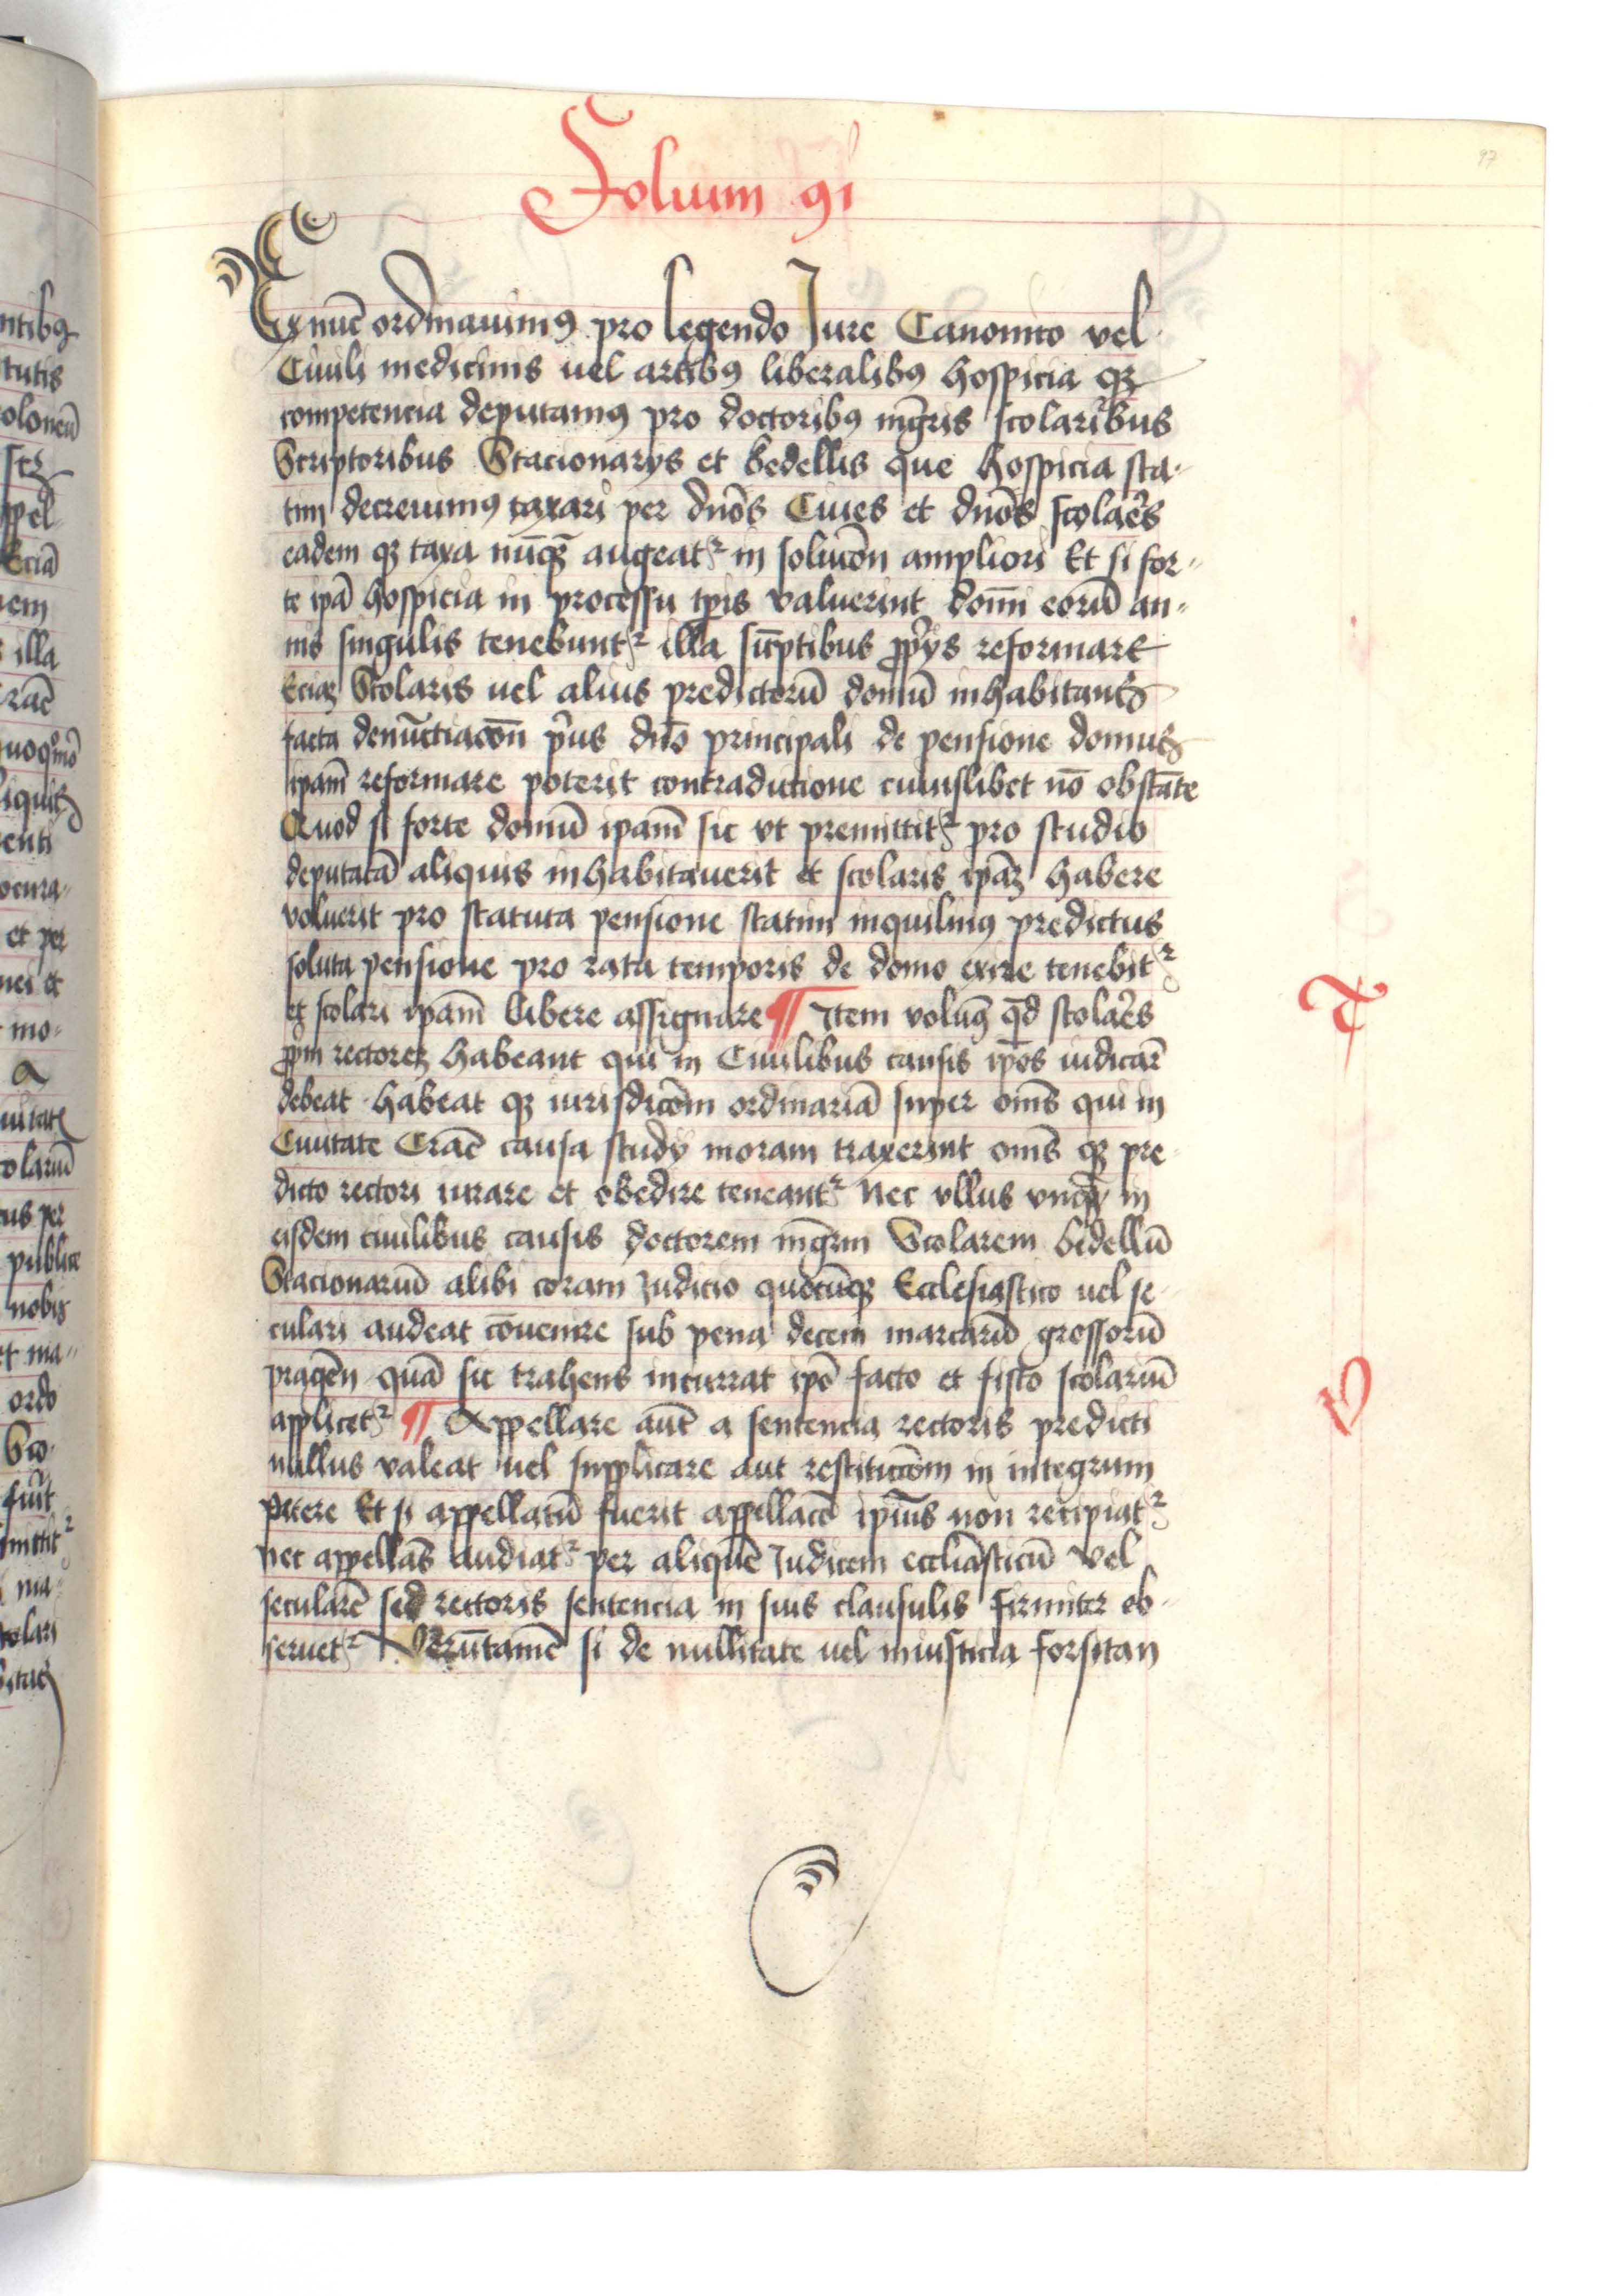 Folium 91
97
Ex nūc ordinauimꝰ pro legendo Iure Canonico vel
Ciuili medicinis uel artibꝰ liberalibꝰ hospicia qꝫ
competencia deputamꝰ pro doctoribꝰ mg̅ris scolaribus
Scriptoribus Stacionarys et bedellis que hospicia sta-
tim decreuimꝰ taxari per duōs Ciues et duōs scolaēs
eadem qꝫ taxa nūqꝫ augeatᷣ in soluc̄on ampliori Et si for-
te ipā hospicia in processu tp̄is valuerint domī eorū an-
nis singulis tenebuntᷣ illa sūptibus ꝓprys reformare
Eciaꝫ Scolaris uel alius predictorū domū inhabitans
facta denūctiacōn pʳus dn̄o principali de pensione domus
ipam̄ reformare poterit contradictione cuiuslibet nō obstāte
Quod si forte domū ipam̄ sic vt premittitᷣ pro studio
deputatā aliquis inhabitauerit et scolaris ipāꝫ habere
voluerit pro statuta pensione statim inquilinꝰ predictus
soluta pensione pro rata temporis de domo exire tenebitᷣ
et scolari ipam̄ libere assignare ¶ Item volumꝰ qd̄ scolaēs
ꝓpm rectoreꝫ habeant qui in Ciuilibus causis ip̄os iudicar̄
debeat habeat qꝫ iurisdicōm ordinariā super om̄s qui in
Ciuitate Crac̄ causa study moram traxerint om̄s qꝫ pre
dicto rectori iurare et obedire teneantᷣ Nec vllus vnqꝫ in
eisdem ciuilibus causis doctorem mg̅rm Scolarem bidellū
Stacionariū alibi coram Iudicio quocūqꝫ Ecclesiastico uel se-
culari audeat cōuenire sub pena decem marcarū grossorū
pragēn quā sic trahens incurrat ipō facto et fisco scolariū
applicetᷣ ¶ Appellare aūt a sentencia rectoris predicti
nullus valeat uel supplicare aut restitucōm in integrum
petere Et si appellatū fuerit appellacō ipīus non recipiatᷣ
nec appellās audiatᷣ per aliquē Iudicem eccliāsticū vel
secularē sed rectoris sentencia in suis clausulis firmiter ob-
seruetᷣ Verūtamē si de nullitate uel iniusticia forsitan
T
V